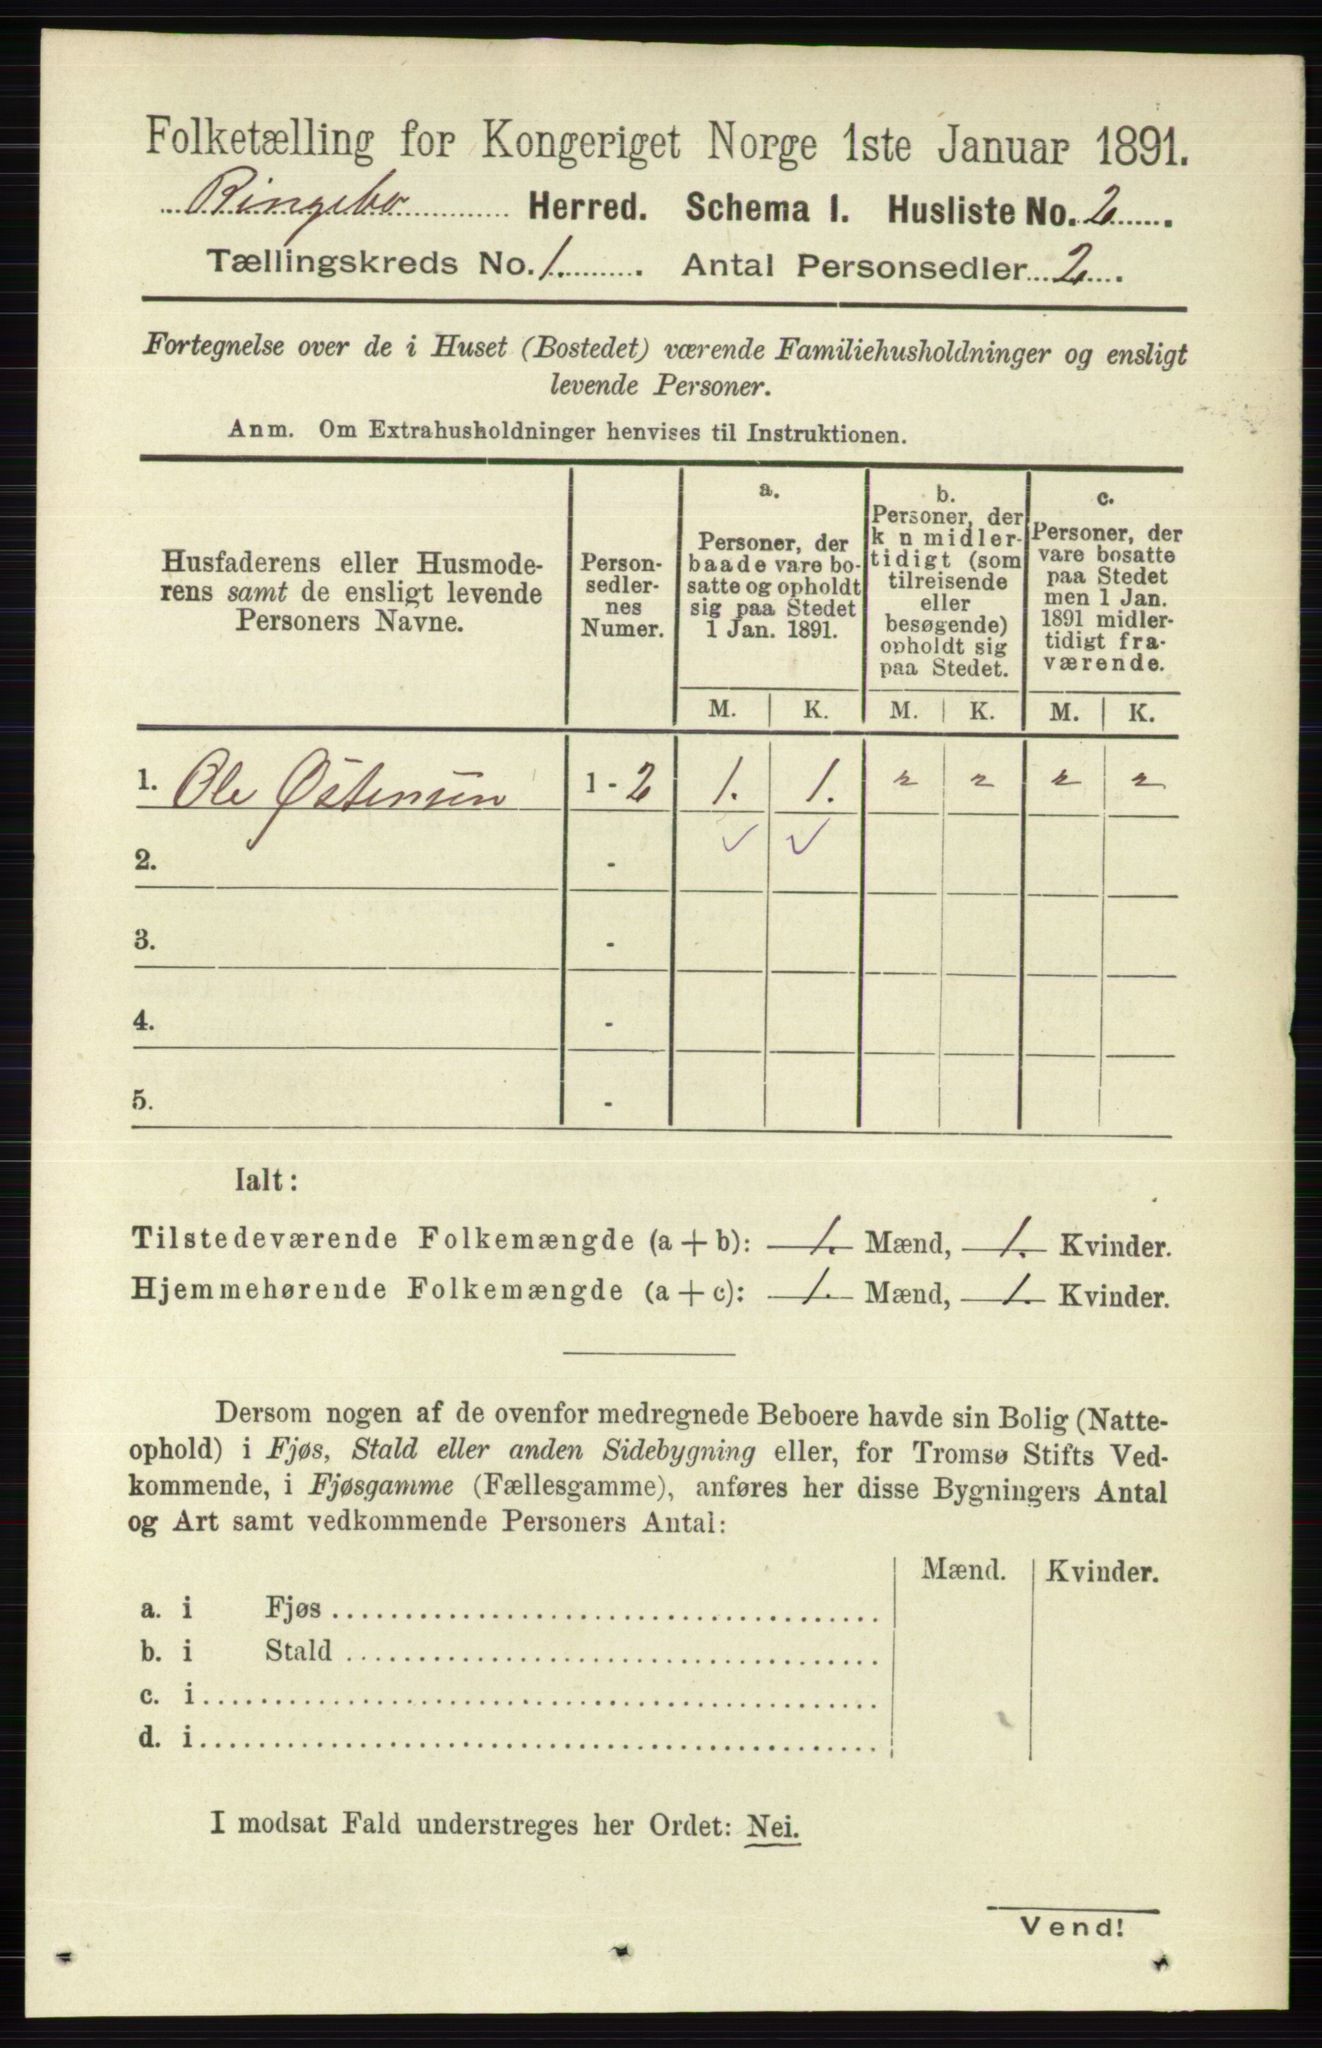 Folketælling for Kongeriget Norge 1ste Januar 1891.
Ringebo Herred. Schema I. Husliste No. 2
Tællingskreds No. 1. Antal Personsedler 2
Fortegnelse over de i Huset (Bostedet) værende Familiehusholdninger og ensligt
levende Personer.
Anm. Om Extrahusholdninger henvises til Instruktionen.
Husfaderens eller Husmode-
rens samt de ensligt levende
Personers Navne.
Person-
sedler-
nes
Numer.
a.
Personer, der
baade vare bo-
satte og opholdt
sig paa Stedet
1 Jan. 1891.
b.
Personer, der
k n midler-
tidigt (som
tilreisende
eller
besøgende)
opholdt sig
paa Stedet.
c.
Personer, der
vare bosatte
paa Stedet
men 1 Jan.
1891 midler-
tidigt fra-
værende.
M. K. M. K. M. K.
1. Ole Østensen 1 - 2 1. 1. " " " "
2. -
3. -
4. -
5. -
Ialt:
Tilstedeværende Folkemængde (a + b): 1. Mænd, 1. Kvinder.
Hjemmehørende Folkemængde (a + c): 1. Mænd, 1. Kvinder.
Dersom nogen af de ovenfor medregnede Beboere havde sin Bolig (Natte-
ophold) i Fjøs, Stald eller anden Sidebygning eller, for Tromsø Stifts Ved-
kommende, i Fjøsgamme (Fællesgamme), anføres her disse Bygningers Antal
og Art samt vedkommende Personers Antal:
Mænd. Kvinder.
a. i Fjøs
b. i Stald
c. i
d. i
I modsat Fald understreges her Ordet: Nei.
Vend!